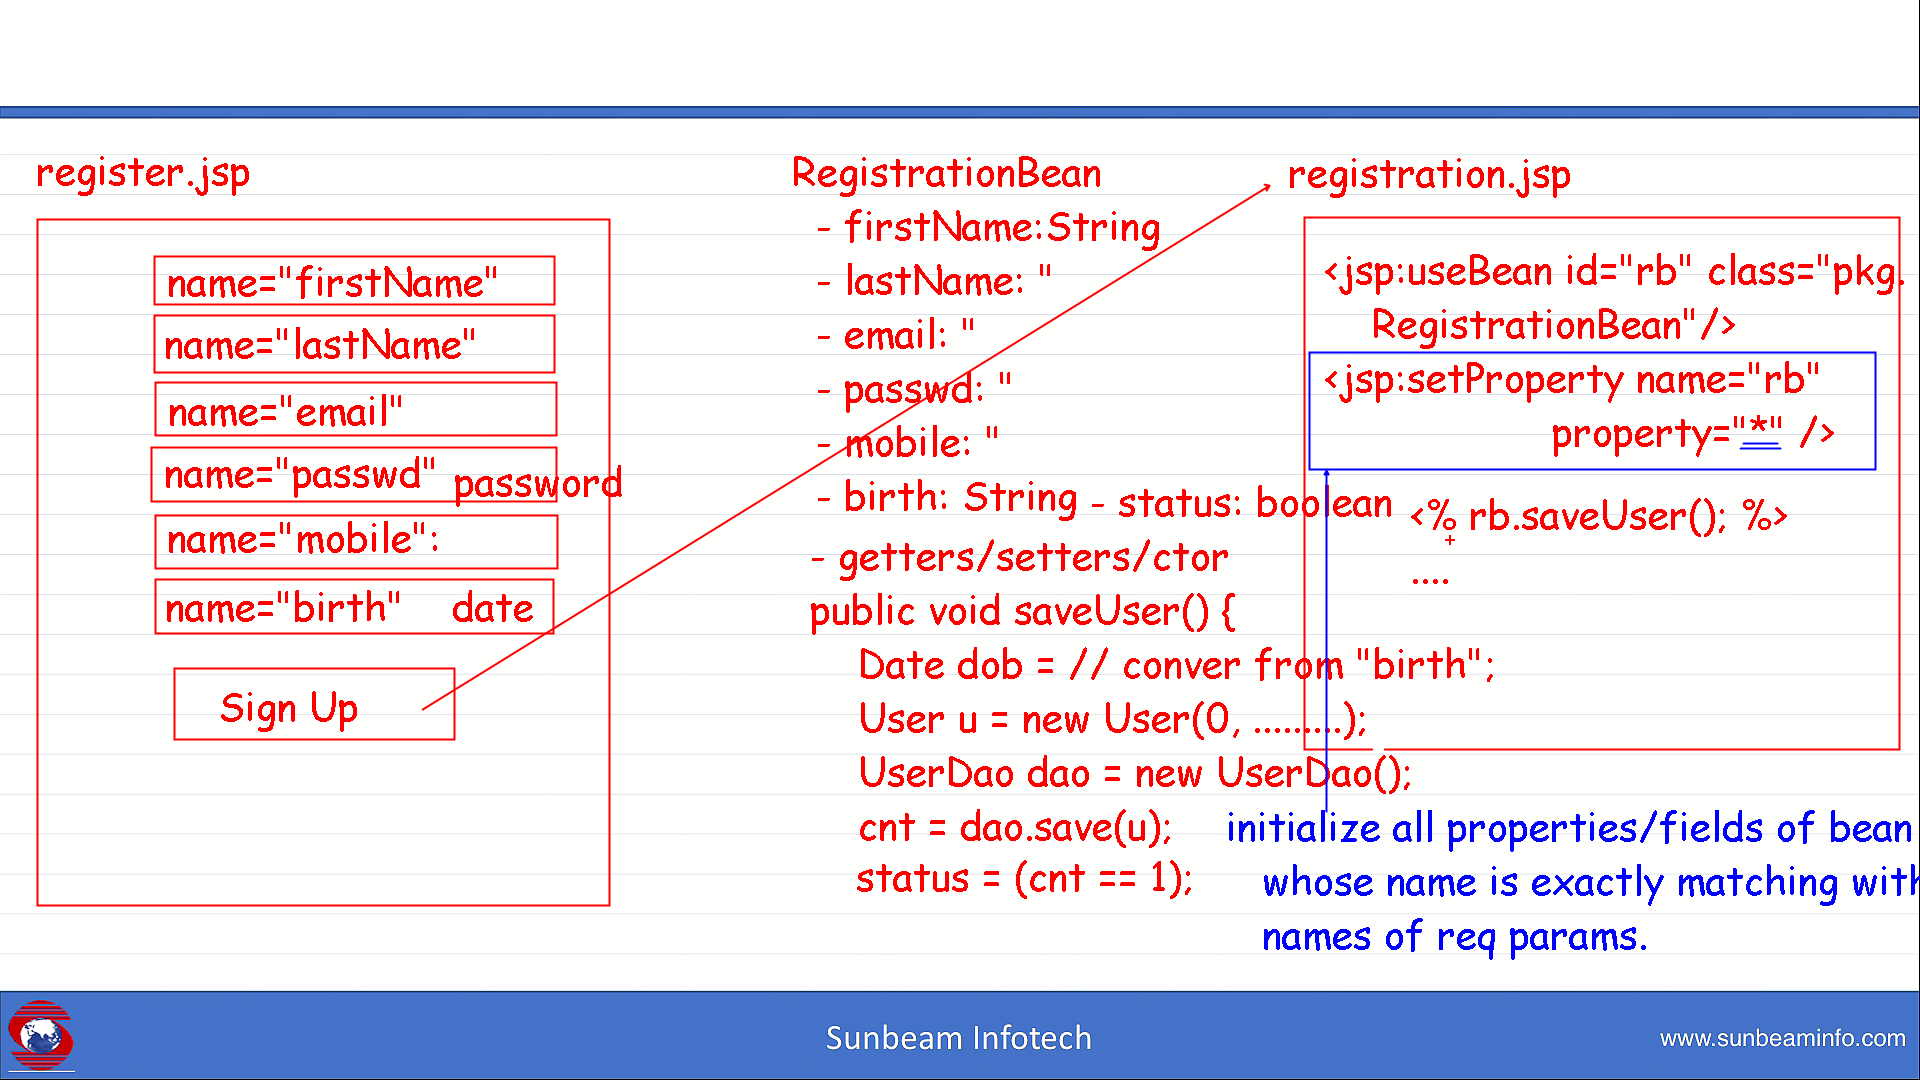 register.jsp
name="firstName"
name="lastName"
name="email"
name="passwd" password
name="mobile":
name="birth" date
Sign Up
RegistrationBean
- firstName:String
- lastName: "
- email: "
- passwd: "
- mobile: "
- birth: String - status: boolean
- getters/setters/ctor
public void saveUser() {
Date dob = // conver from "birth";
User u = new User(0, .........);
UserDao dao = new UserDao();
cnt = dao.save(u);
status = (cnt == 1);
registration.jsp
<jsp:useBean id="rb" class="pkg.
RegistrationBean"/>
<jsp:setProperty name="rb"
property="*" />
<% rb.saveUser(); %>
....
initialize all properties/fields of bean
whose name is exactly matching with
names of req params.
Sunbeam Infotech
www.sunbeaminfo.com